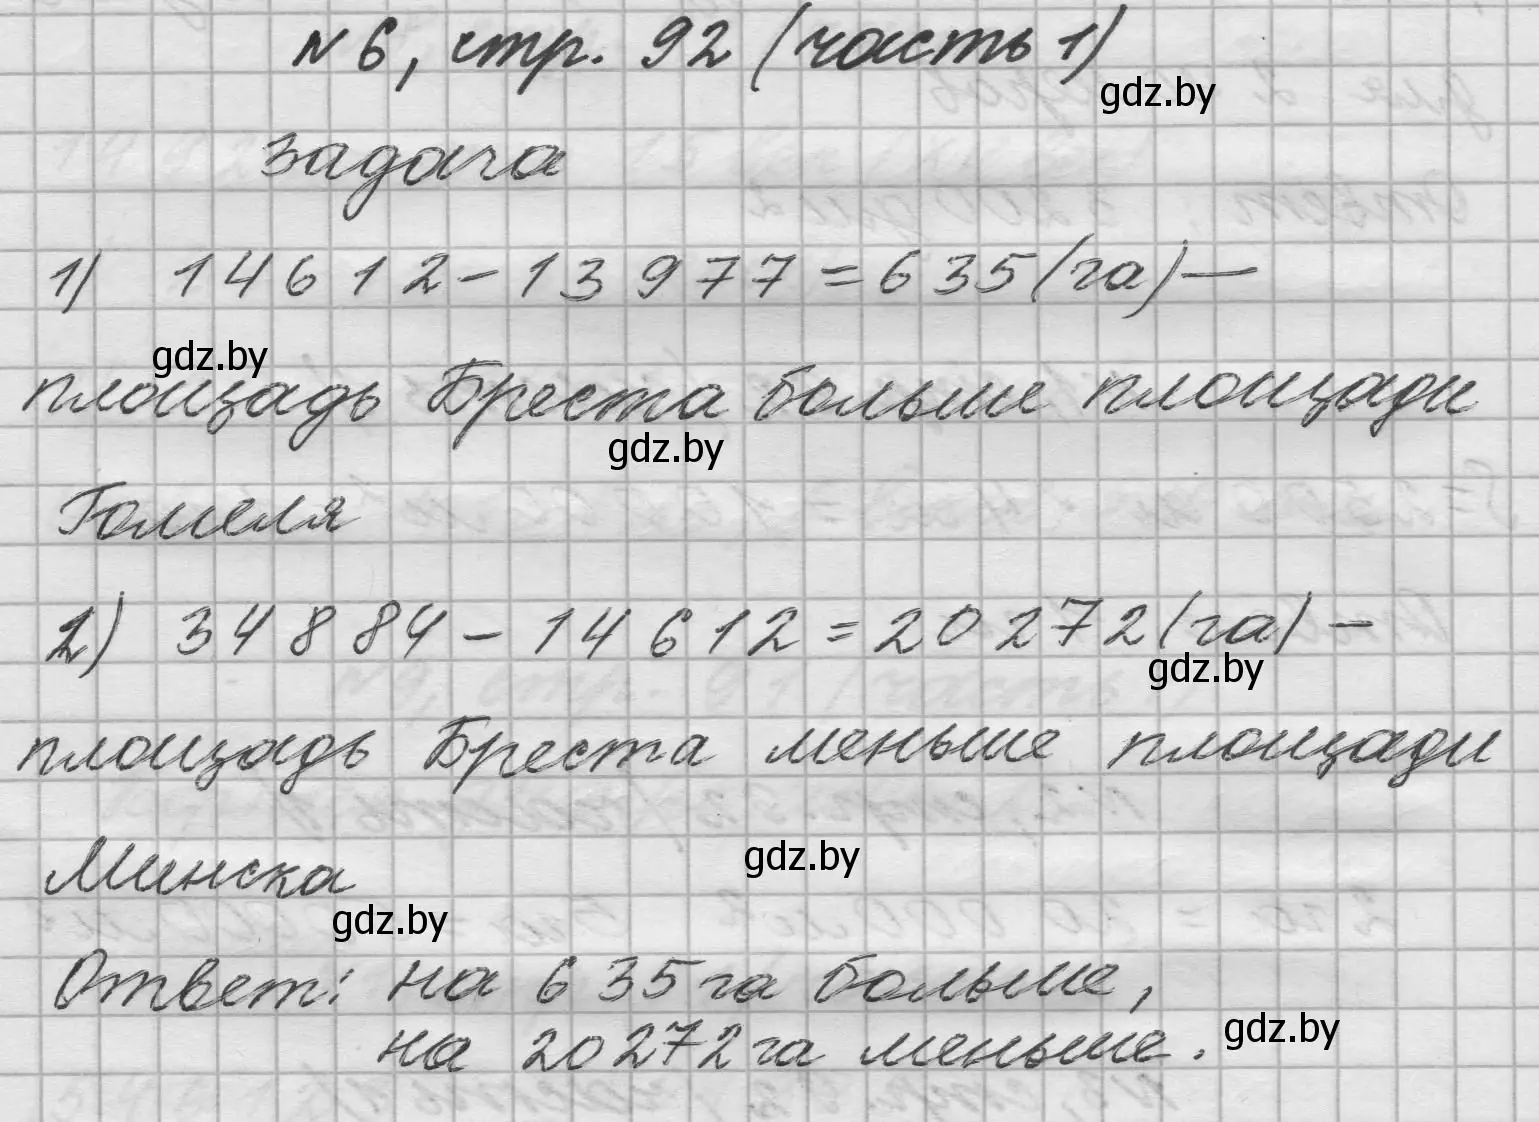 №6, стр. 92 (часть 1)
gdz.by
задача
1) 14612-13977=635(га)—
gdz.by
площадь Бреста больше площади
gdz.by
Гомеля
2) 34884-14612=20272(га)-
gdz.by
площадь Бреста меньше площади
Минска
gdz.by
gdz.by
Ответ: на 635 га больше,
на 20272 га меньше.
gdz.by